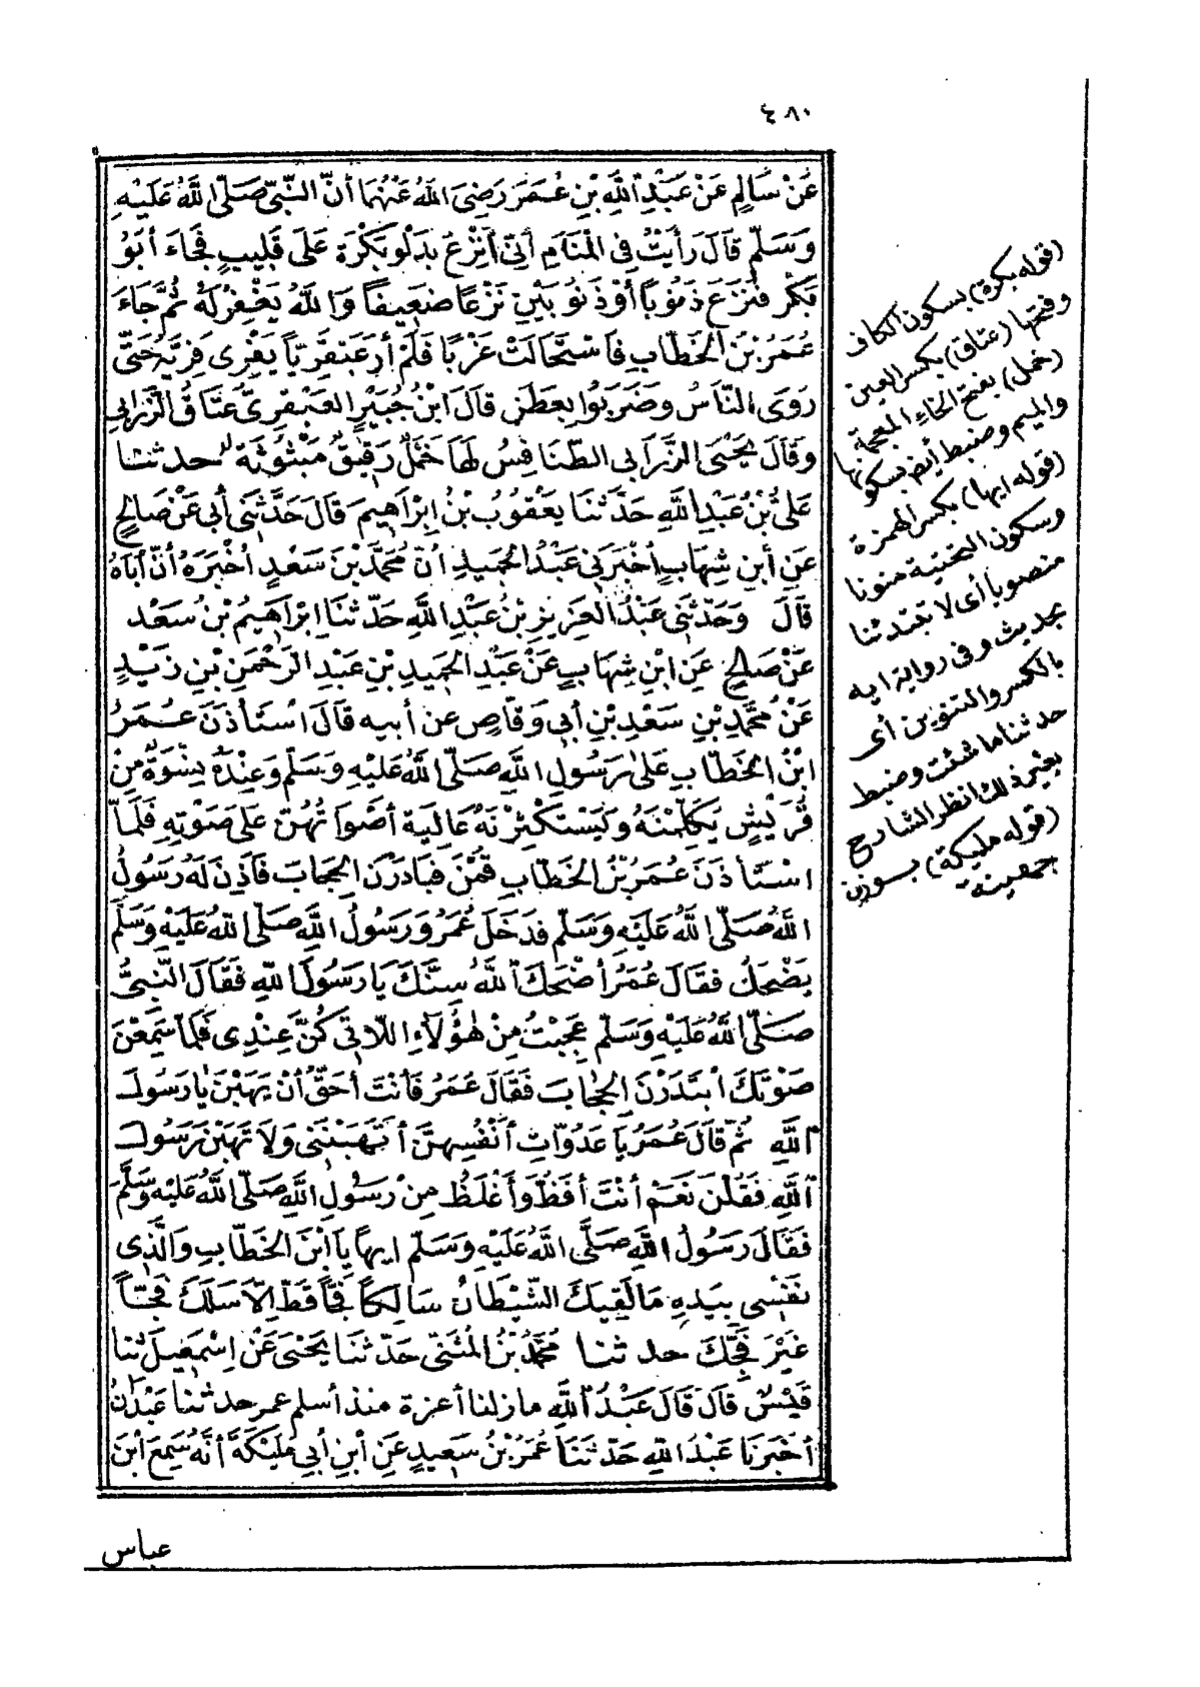 ٤٨٠
عَنْ سَالِمٍ عَنْ عَبْدِ اللَّهِ بْنِ عُمَرَ رَضِيَ اللَّهُ عَنْهُمَا أَنَّ النَّبِيَّ صَلَّى اللَّهُ عَلَيْهِ
وَسَلَّمَ قَالَ رَأَيْتُ فِي الْمَنَامِ أَنِّي أَنْزِعُ بِدَلْوِ بَكْرَةٍ عَلَى قَلِيبٍ فَجَاءَ أَبُو
بَكْرٍ فَنَزَعَ ذَنُوبًا أَوْ ذَنُوبَيْنِ نَزْعًا ضَعِيفًا وَاللَّهُ يَغْفِرُ لَهُ ثُمَّ جَاءَ
عُمَرُ بْنُ الْخَطَّابِ فَاسْتَحَالَتْ غَرْبًا فَلَمْ أَرَ عَبْقَرِيًّا يَفْرِي فَرِيَّهُ حَتَّى
رَوِيَ النَّاسُ وَضَرَبُوا بِعَطَنٍ قَالَ ابْنُ جُبَيْرٍ الْعَبْقَرِيُّ عِتَاقُ الزَّرَابِي
وَقَالَ يَحْيَى الزَّرَابِي الطَّنَافِسُ لَهَا خَمْلٌ رَقِيقٌ مَبْثُوثَةٌ حدثنا
عَلِيُّ بْنُ عَبْدِ اللَّهِ حَدَّثَنَا يَعْقُوبُ بْنُ إِبْرَاهِيمَ قَالَ حَدَّثَنِي أَبِي عَنْ صَالِحٍ
عَنِ ابْنِ شِهَابٍ أَخْبَرَنِي عَبْدُ الْحَمِيدِ أَنَّ مُحَمَّدَ بْنَ سَعْدٍ أَخْبَرَهُ أَنَّ أَبَاهُ
قَالَ وَحَدَّثَنِي عَبْدُ الْعَزِيزِ بْنُ عَبْدِ اللَّهِ حَدَّثَنَا إِبْرَاهِيمُ بْنُ سَعْدٍ
عَنْ صَالِحٍ عَنِ ابْنِ شِهَابٍ عَنْ عَبْدِ الْحَمِيدِ بْنِ عَبْدِ الرَّحْمَنِ بْنِ زَيْدٍ
عَنْ مُحَمَّدِ بْنِ سَعْدِ بْنِ أَبِي وَقَّاصٍ عن أبيه قَالَ اسْتَأْذَنَ عُمَرُ
ابْنُ الْخَطَّابِ عَلَى رَسُولِ اللَّهِ صَلَّى اللَّهُ عَلَيْهِ وَسَلَّمَ وَعِنْدَهُ نِسْوَةٌ مِنْ
قُرَيْشٍ يُكَلِّمْنَهُ وَيَسْتَكْثِرْنَهُ عَالِيَةً أَصْوَاتُهُنَّ عَلَى صَوْتِهِ فَلَمَّا
اسْتَأْذَنَ عُمَرُ بْنُ الْخَطَّابِ قُمْنَ فَبَادَرْنَ الْحِجَابَ فَأَذِنَ لَهُ رَسُولُ
اللَّهِ صَلَّى اللَّهُ عَلَيْهِ وَسَلَّمَ فَدَخَلَ عُمَرُ وَرَسُولُ اللَّهِ صَلَّى اللَّهُ عَلَيْهِ وَسَلَّمَ
يَضْحَكُ فَقَالَ عُمَرُ أَضْحَكَ اللَّهُ سِنَّكَ يَا رَسُولَ اللَّهِ فَقَالَ النَّبِيُّ
صَلَّى اللَّهُ عَلَيْهِ وَسَلَّمَ عَجِبْتُ مِنْ هَؤُلَاءِ اللَّاتِي كُنَّ عِنْدِي فَلَمَّا سَمِعْنَ
صَوْتَكَ ابْتَدَرْنَ الْحِجَابَ فَقَالَ عُمَرُ فَأَنْتَ أَحَقُّ أَنْ يَهَبْنَ يَا رَسُولَ
اللَّهِ ثُمَّ قَالَ عُمَرُ يَا عَدُوَّاتِ أَنْفُسِهِنَّ أَتَهَبْنَنِي وَلَا تَهَبْنَ رَسُولَ
اللَّهِ فَقُلْنَ نَعَمْ أَنْتَ أَفَظُّ وَأَغْلَظُ مِنْ رَسُولِ اللَّهِ صَلَّى اللَّهُ عَلَيْهِ وَسَلَّمَ
فَقَالَ رَسُولُ اللَّهِ صَلَّى اللَّهُ عَلَيْهِ وَسَلَّمَ إِيهًا يَا ابْنَ الْخَطَّابِ وَالَّذِي
نَفْسِي بِيَدِهِ مَا لَقِيَكَ الشَّيْطَانُ سَالِكًا فَجًّا قَطُّ إِلَّا سَلَكَ فَجًّا
غَيْرَ فَجِّكَ حدثنا مُحَمَّدُ بْنُ الْمُثَنَّى حَدَّثَنَا يَحْيَى عَنْ إِسْمَعِيلَ ثنا
قَيْسٌ قَالَ قَالَ عَبْدُ اللَّهِ مازلنا أعزة منذ أسلم عمر حدثنا عَبْدَانُ
أَخْبَرَنَا عَبْدُ اللَّهِ حَدَّثَنَا عُمَرُ بْنُ سَعِيدٍ عَنِ ابْنِ أَبِي مُلَيْكَةَ أَنَّهُ سَمِعَ ابْنَ
(قوله بكرة) بسكون الكاف
وفتحها (عتاق) بكسر العين
(خمل) بفتح الخاء المعجمة
والميم وضبط أيضا بسكونها
(قوله ايها) بكسر الهمزة
وسكون التحتية منونا
منصوبا أى لا تبتدئنا
بحديث وفى رواية ايه
بالكسر والتنوين أى
حدثنا ما شئت وضبط
بغير ذلك انظر الشارح
(قوله مليكة) بوزن
جهينة
عباس